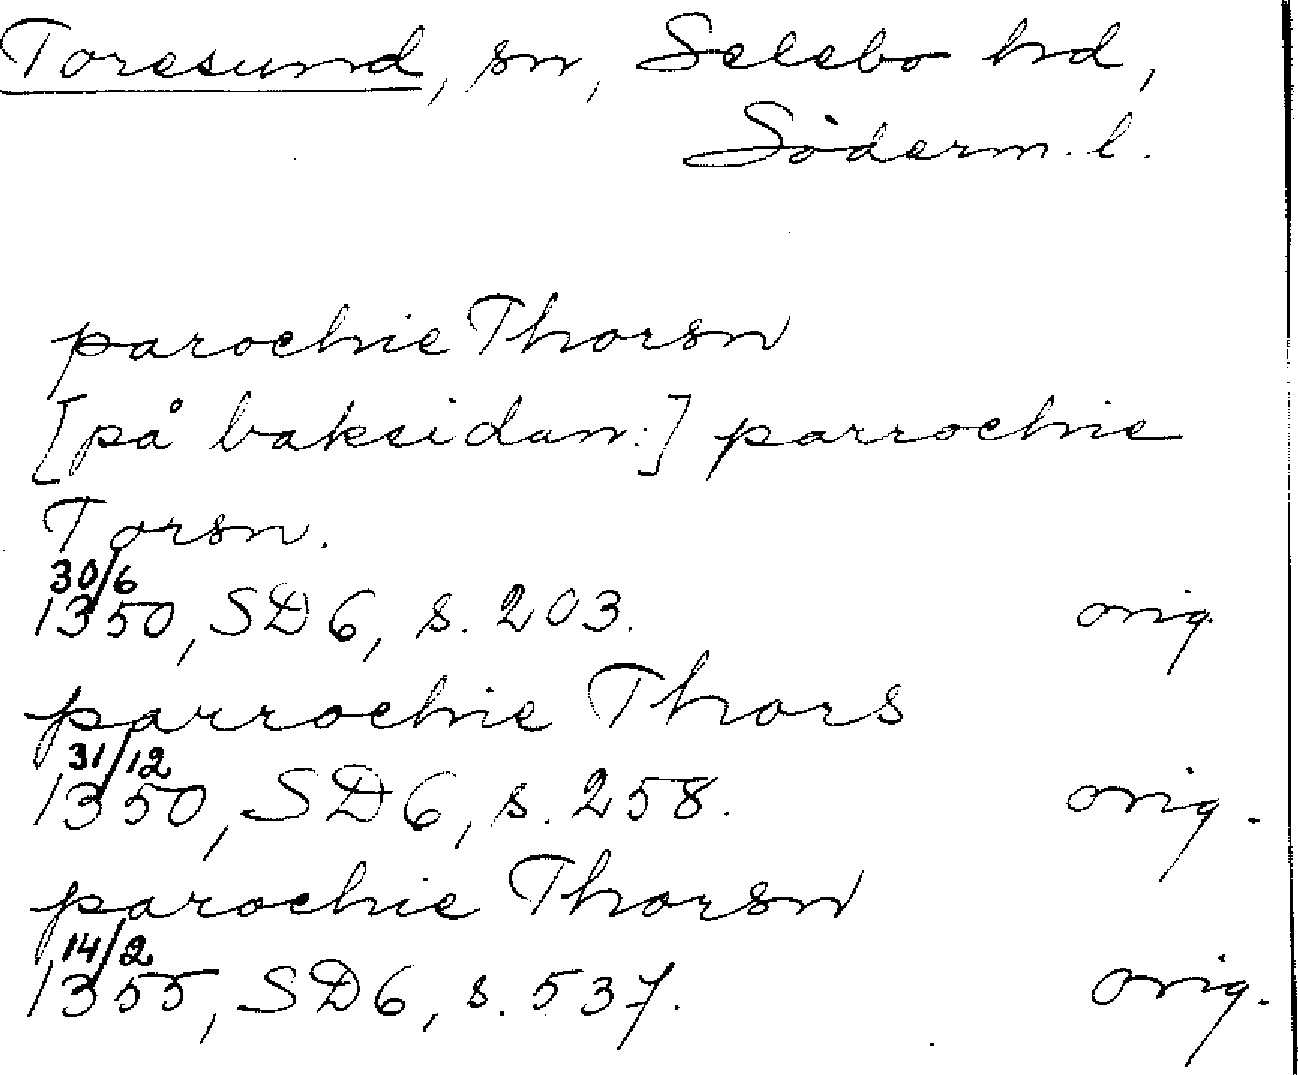 Toresund, sn, Selebo hd,
Söderm. l.
parochie Thorsn
[på baksidan:] parrochie
Torsn.
30/6
1350, SD 6, s. 203. orig.
parrochie Thors
31/12
1350, SD 6, s. 258. orig.
parochie Thorsn
14/2
1355, SD 6, s. 537. orig.